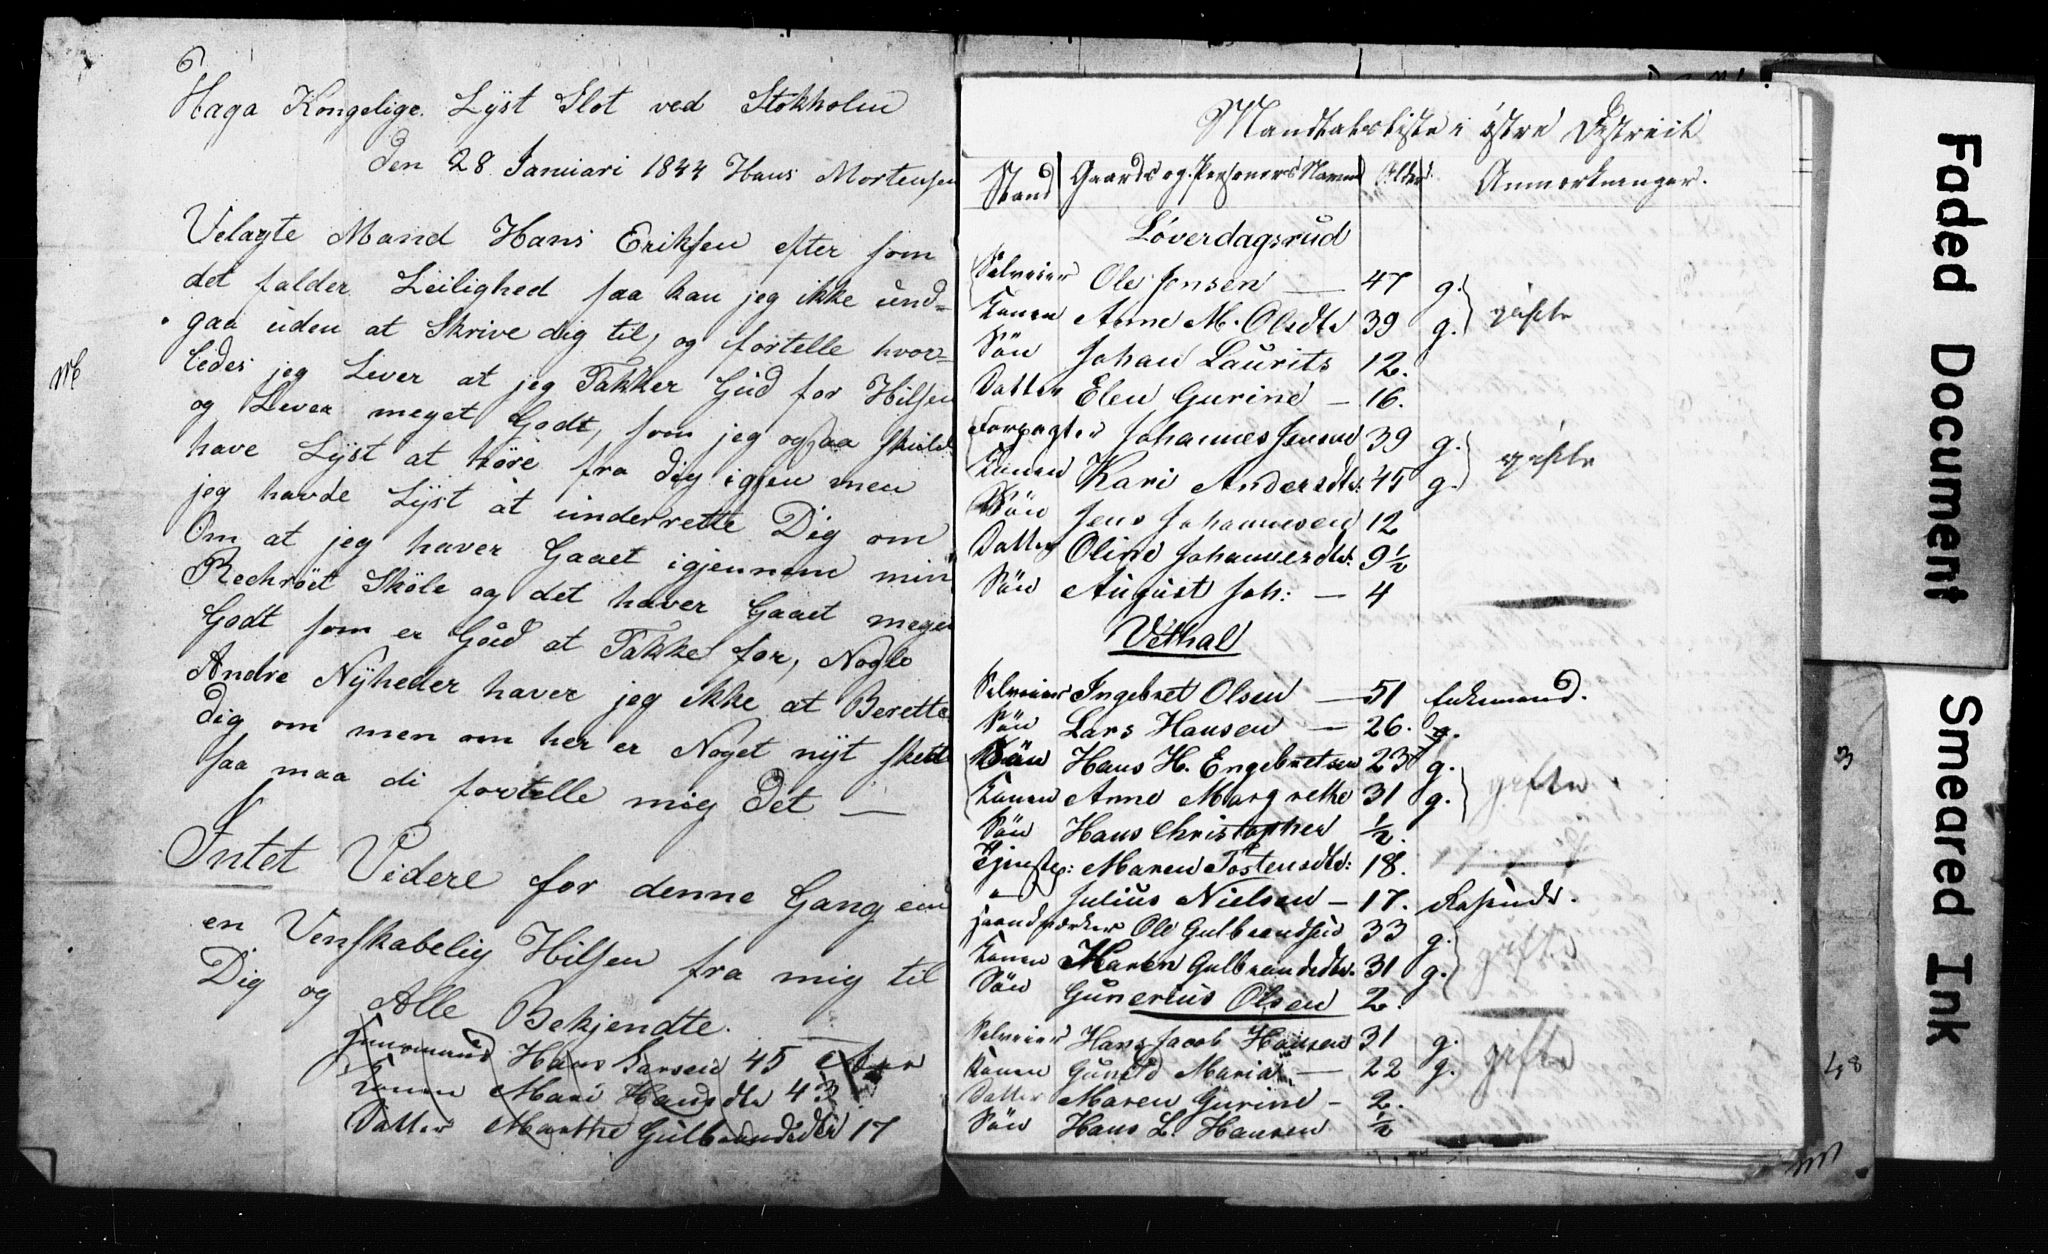 Haga Kongelige Lÿst Slot ved Stokholm
den 28 Januari 1844 Hans Mortensen
Velagte Mand Hans Eriksen efter som
det falder Leilighed saa kan jeg ikke und-
gaa uden at Skrive dig til, og fortelle hvor-
ledes jeg Lever at jeg Takker Gud for Hilsen
og Lever meget Godt, som jeg ogsaa skulde
have Lÿst at høre fra dig igjen men
jeg havde Lÿst at underrette Dig om
Om at jeg haver Gaaet igjennem min
Rechröit Sköle og det haver Gaaet meget
Godt som er Güd at Takke for, Nogle
Andre Nÿheder haver jeg ikke at Berette
dig om men om her er Noget nÿt skeed
saa maa di fortelle mig Det —
Intet Videre for denne Gang end
en Venskabelig Hilsen fra mig til
Dig og Alle Bekjendte.
Huusmand Hans Larsen 45
Konen Mari Hansdtr 43
Datter Marthe Gulbrandsdtr 17
Mandtalsliste i östre Distreict
Stand Gaards og Personers Navne Alder Anmerkninger.
Løverdagsrud
Selveier Ole Jensen — 47 g.
Konen Anne M. Olsdtr 39 g. gifte
Sön Johan Laurits 12.
Datter Elen Gurine — 16.
Forpagter Johannes Jensen 39 g.
Konen Kari Andersdtr: 45 g. gifte
Sön Jens Johannesen 12
Datter Oline Johannesdtr: 9½
Sön August Joh: — 4
Vethal
Selveier Ingebret Olsen — 51 Enkemand.
Sön Lars Hansen — 26. g.
Sön Hans H. Engebretsen 23 g.
Konen Anne Margrethe 31 g. gifte
Sön Hans Christopher ½.
Tjenstep: Maren Tostensdtr: 18.
" Julius Nielsen — 17.
Haandværker Ole Gulbrandsen 33 g.
Konen Maren Gulbrandsdtr. 31 g. gifte
Sön Gunerius Olsen 2.
Selveier Hans Jacob Hansen 31 g.
Konen Maria — 22 g. gifte
Datter Maren Gurine — 2.
Sön Hans L. Hansen ½
3
48
Faded Document
Smeared Ink